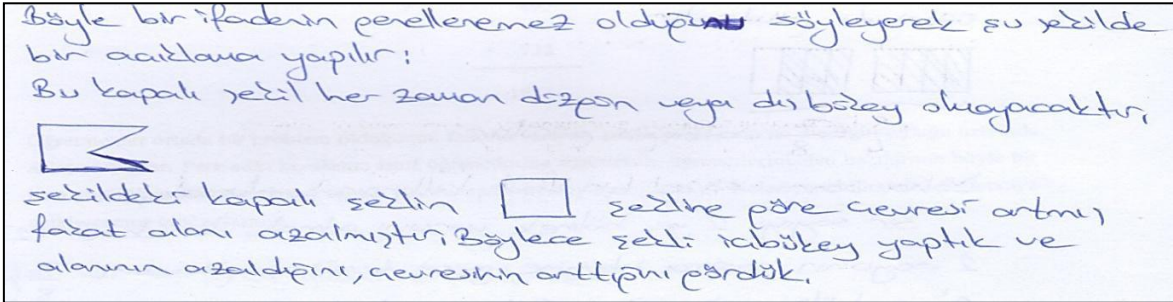 Böyle bir ifadenin genellenemez olduğunu söyleyerek şu şekilde
bir açıklama yapılır:
Bu kapalı şekil her zaman düzgün veya dışbükey olmayacaktır,
şekildeki kapalı şeklin şekline göre çevresi artmış
fakat alanı azalmıştır, Böylece şekli içbükey yaptık ve
alanının azaldığını, çevresinin arttığını gördük.